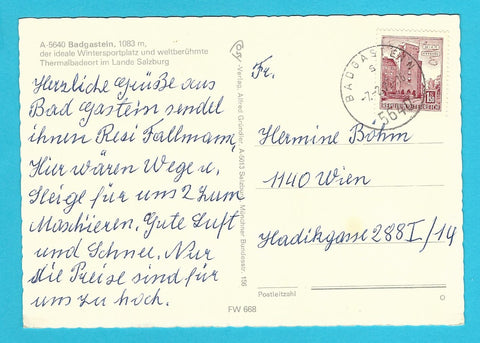 A-5640 Badgastein, 1083 m,
der ideale Wintersportplatz und weltberühmte
Thermalbadeort im Lande Salzburg
Herzliche Grüße aus
Bad Gastein sendet
ihnen Resi Fallmann,
Hier wären Wege u.
Steige für uns 2 zum
Maschieren, Gute Luft
und Schnee. Nur
die Preise sind für
uns zu hoch.
Verlag Alfred Gründler, A-5013 Salzburg, Münchner Bundesstr. 156
FW 668
BADGASTEIN
5640
Fr.
Hermine Bohm
1140 Wien
Hadikgasse 288 I/14
Postleitzahl